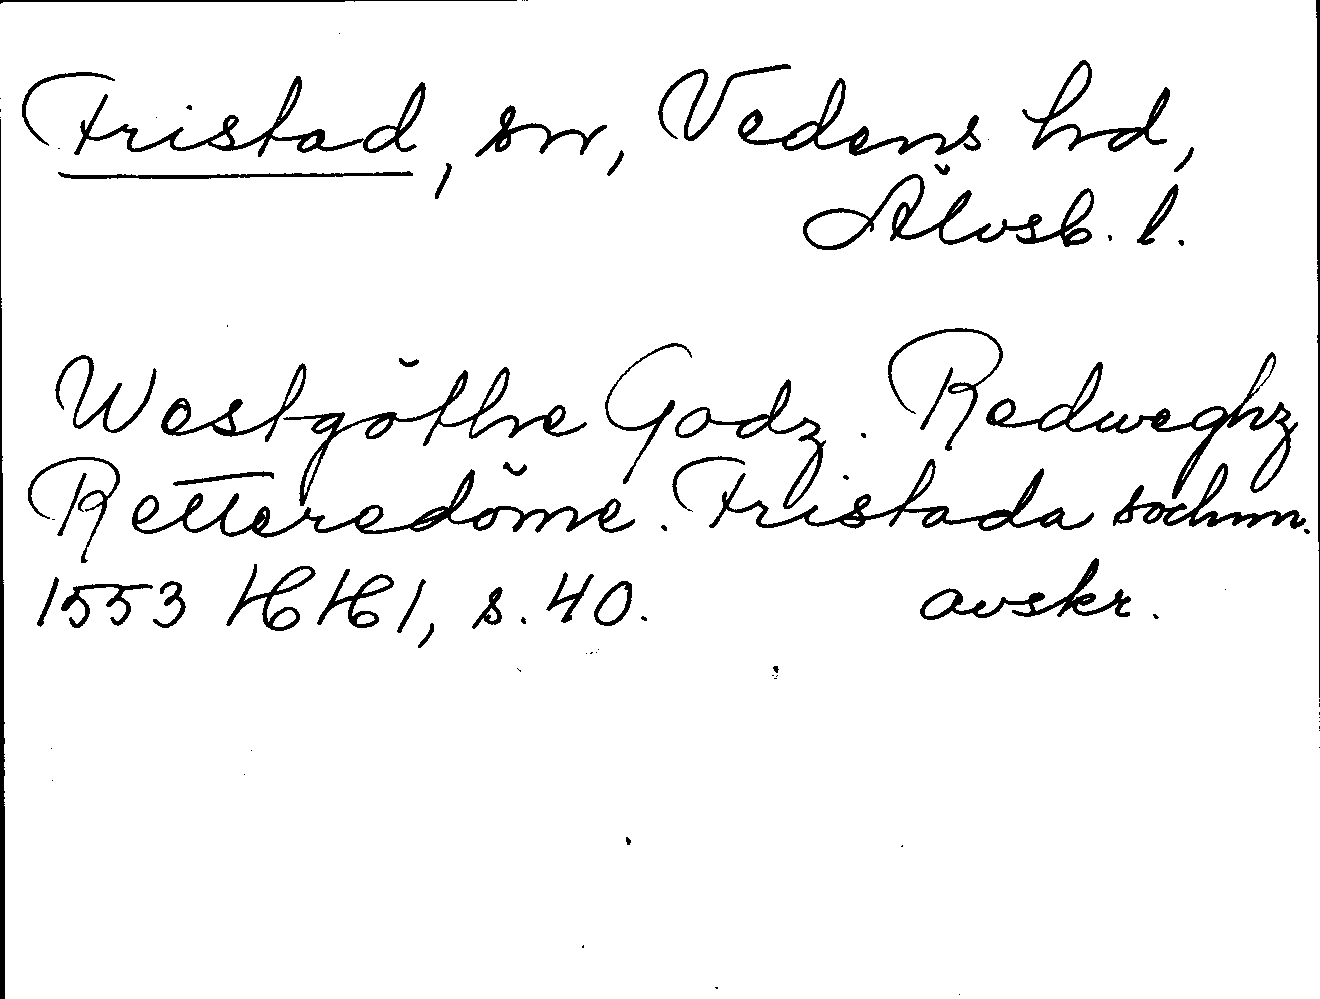 Fristad, sn, Vedens hd,
Älvsb. l.
Westgöthe Godz. Redweghz
Retteredöme. Fristada sochnn.
1553 HH 1, s. 40. avskr.